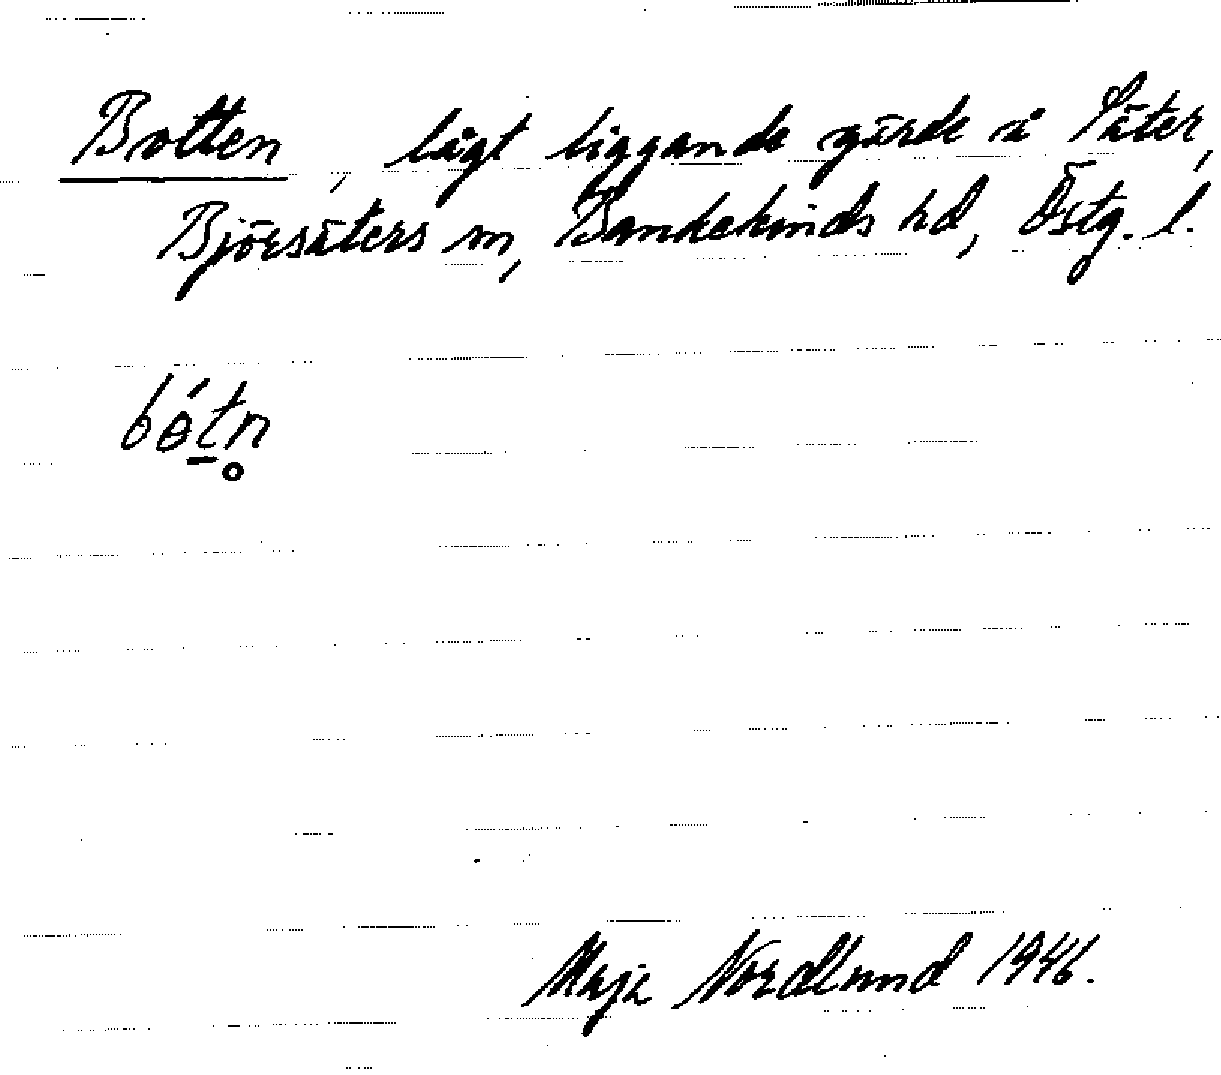 Botten, lågt liggande gärde å Säter,
Björsäters sn, Bankekinds hd, Östg. l.
bó̵t̠n̥
Maja Nordlund 1946.